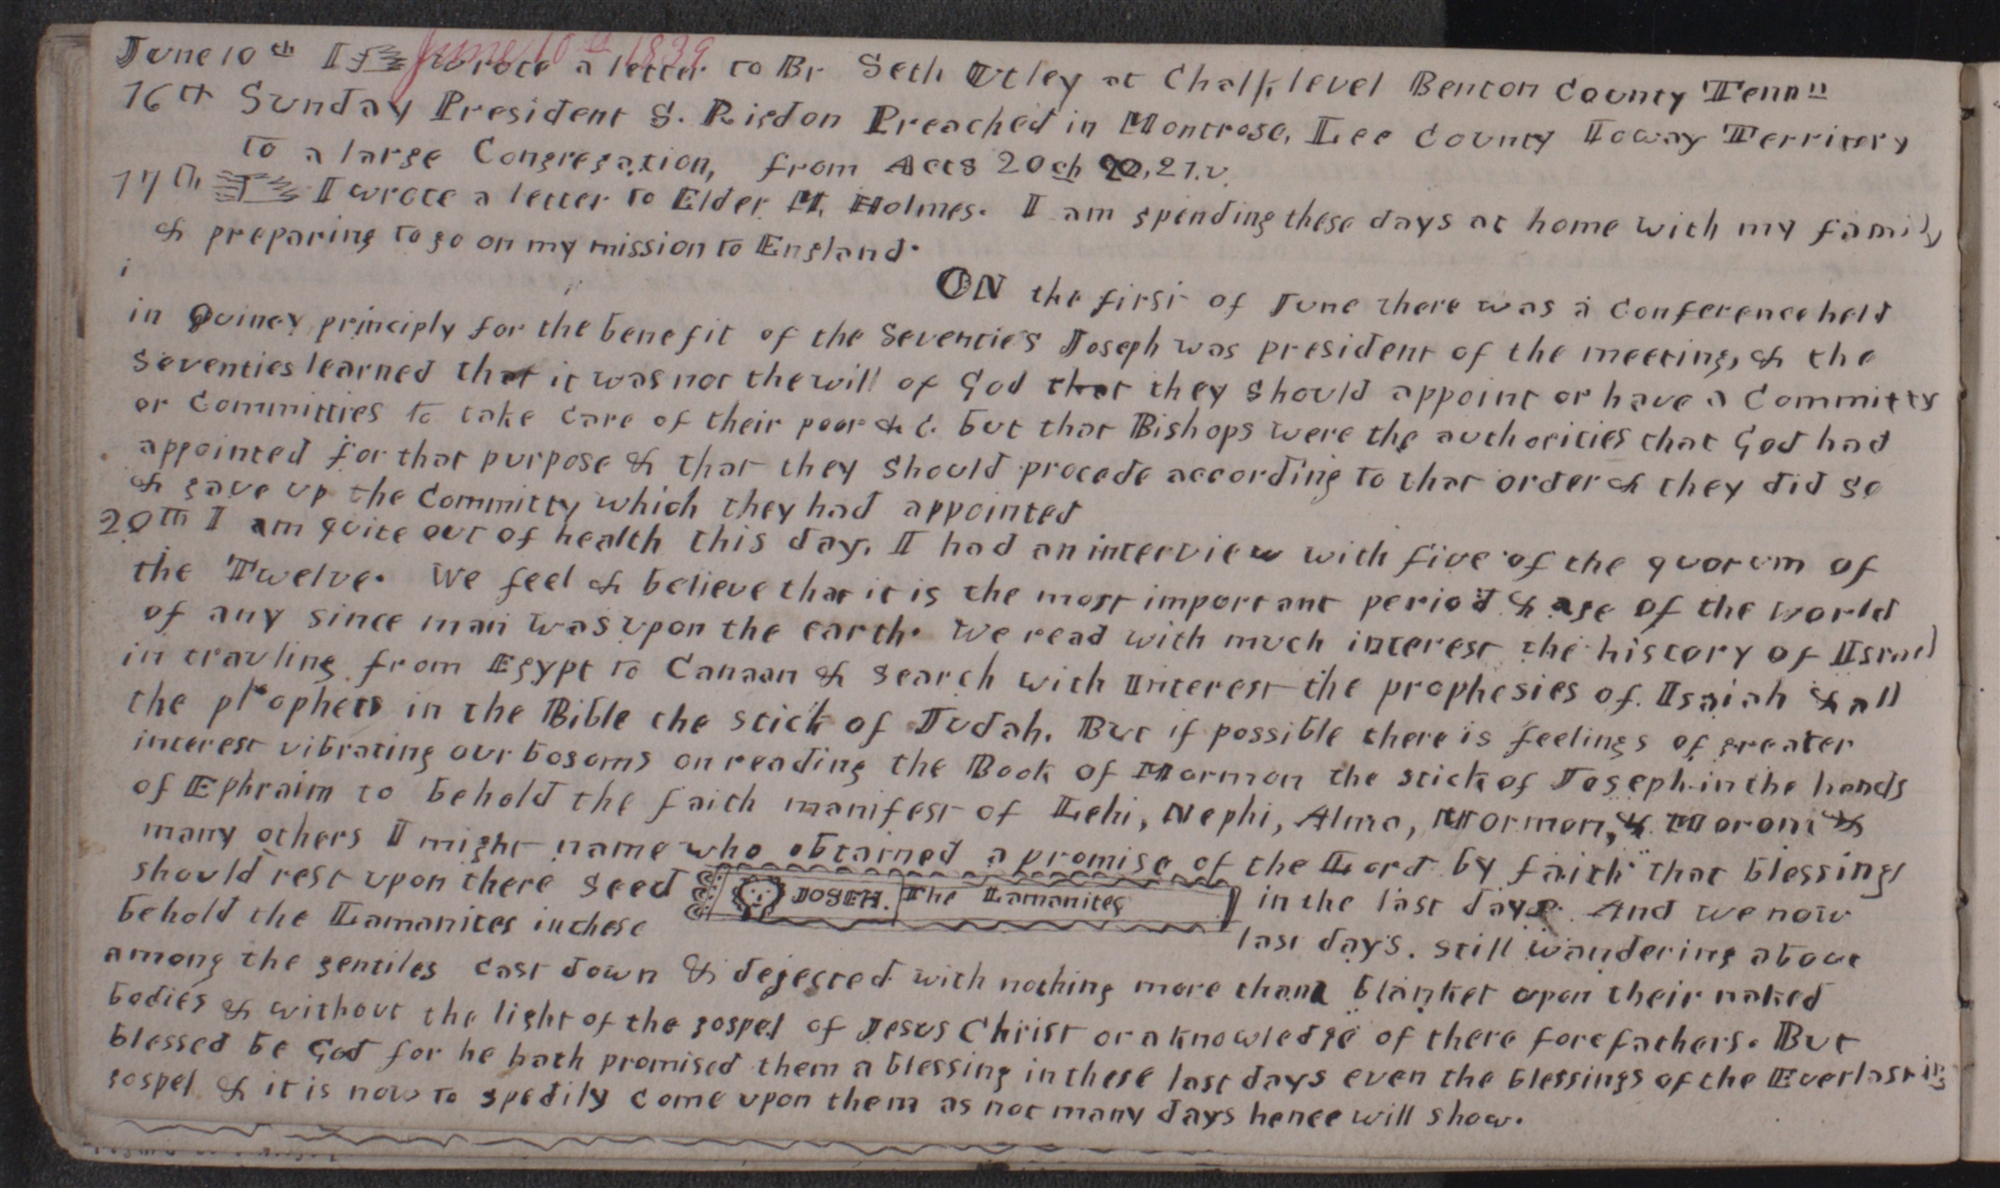 June 10th 1839
June 10th I wrote a letter to Br Seth Utley at Chalk level Benton County Tenn"
16th Sunday President S. Rigdon Preached in Montrose, Lee County Ioway Territory
to a large Congregation, from Acts 20ch 20,21.v.
17th I wrote a letter to Elder M. Holmes. I am spending these days at home with my family
& preparing to go on my mission to England.
ON the first of June there was a Conference held
in Quincy principly for the benefit of the Seventies Joseph was president of the meeting, & the
Seventies learned that it was not the will of God that they should appoint or have a Committy
or Committies to take care of their poor &c. but that Bishops were the authorities that God had
appointed for that purpose & that they should procede according to that order & they did so
& gave up the Committy which they had appointed
20th I am quite out of health this day. I had an interview with five of the quorum of
the Twelve. We feel & believe that it is the most important period & age of the world
of any since man was upon the earth. We read with much interest the history of Israel
in travling from Egypt to Canaan & search with interest the prophesies of Isaiah & all
the prophets in the Bible the stick of Judah. But if possible there is feelings of greater
interest vibrating our bosoms on reading the Book of Mormon the stick of Joseph in the hands
of Ephraim to behold the faith manifest of Lehi, Nephi, Alma, Mormon, & Moroni &
many others I might name who obtained a promise of the Lord by faith that blessings
should rest upon there seed JOSEH. The Lamanites in the last days. And we now
behold the Lamanites in these last days. still wandering about
among the gentiles cast down & dejected with nothing more than a blanket upon their naked
bodies & without the light of the gospel of Jesus Christ or a knowledge of there forefathers. But
blessed be God for he hath promised them a blessing in these last days even the blessings of the Everlasting
gospel & it is now to spedily come upon them as not many days hence will show.